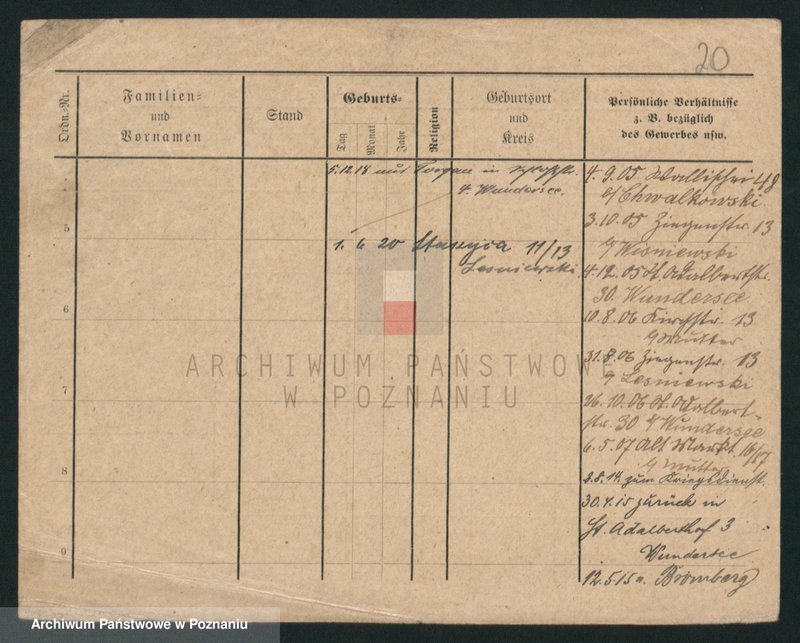 20
Ordn.-Nr.
Familien=
und
Vornamen
Stand
Geburts=
Tag
Monat
Jahr
Religion
Geburtsort
und
Kreis
Persönliche Verhältnisse
z. B. bezüglich
des Gewerbes usw.
5.12.18 aus Torgau in
4. Wundersee.
1. 6 20 Staszyca 11/13
Lesniewski
4.9.05 Wallischei 48
b/Chwalkowski
3.10.05 Ziegenstr. 13
b/ Wisniewski
4.12.05 St. Adalbertstr.
30. Wundersee
10.8.06 Kirchstr. 13
b/Mutter
31.8.06 Ziegenstr. 13
b/ Lesniewski
26.10.06 St. Adalbert-
str. 30 b/ Wundersee
6.5.07 Alt Markt 16/17
b/ Mutter
8.8.14. zum Kriegsdienst.
30.4.15 zurück in
St. Adalberthof 3
Wundersee
12.5.15 n. Bromberg
5
6
7
8
9
ARCHIWUM PAŃSTWOWE
W POZNANIU
Archiwum Państwowe w Poznaniu